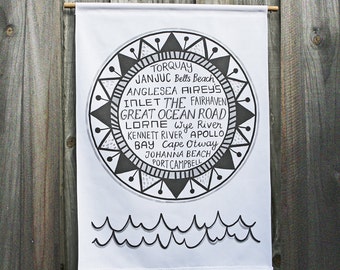 TORQUAY
JANJUC Bells Beach
ANGLESEA AIREYS
INLET THE FAIRHAVEN
GREAT OCEAN ROAD
LORNE Wye River
KENNETT RIVER APOLLO
BAY Cape Otway
JOHANNA BEACH
PORT CAMPBELL